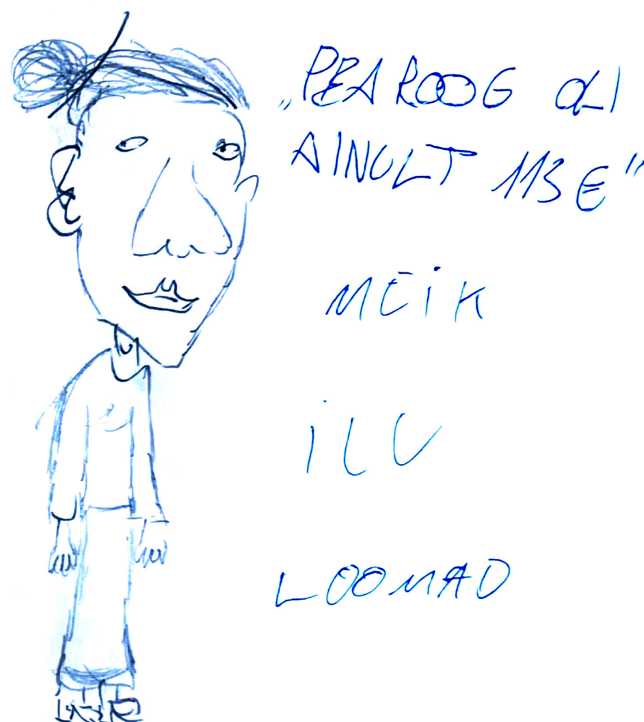 „PEAROOG OLI
AINULT 113 €"
MEIK
ILU
LOOMAD